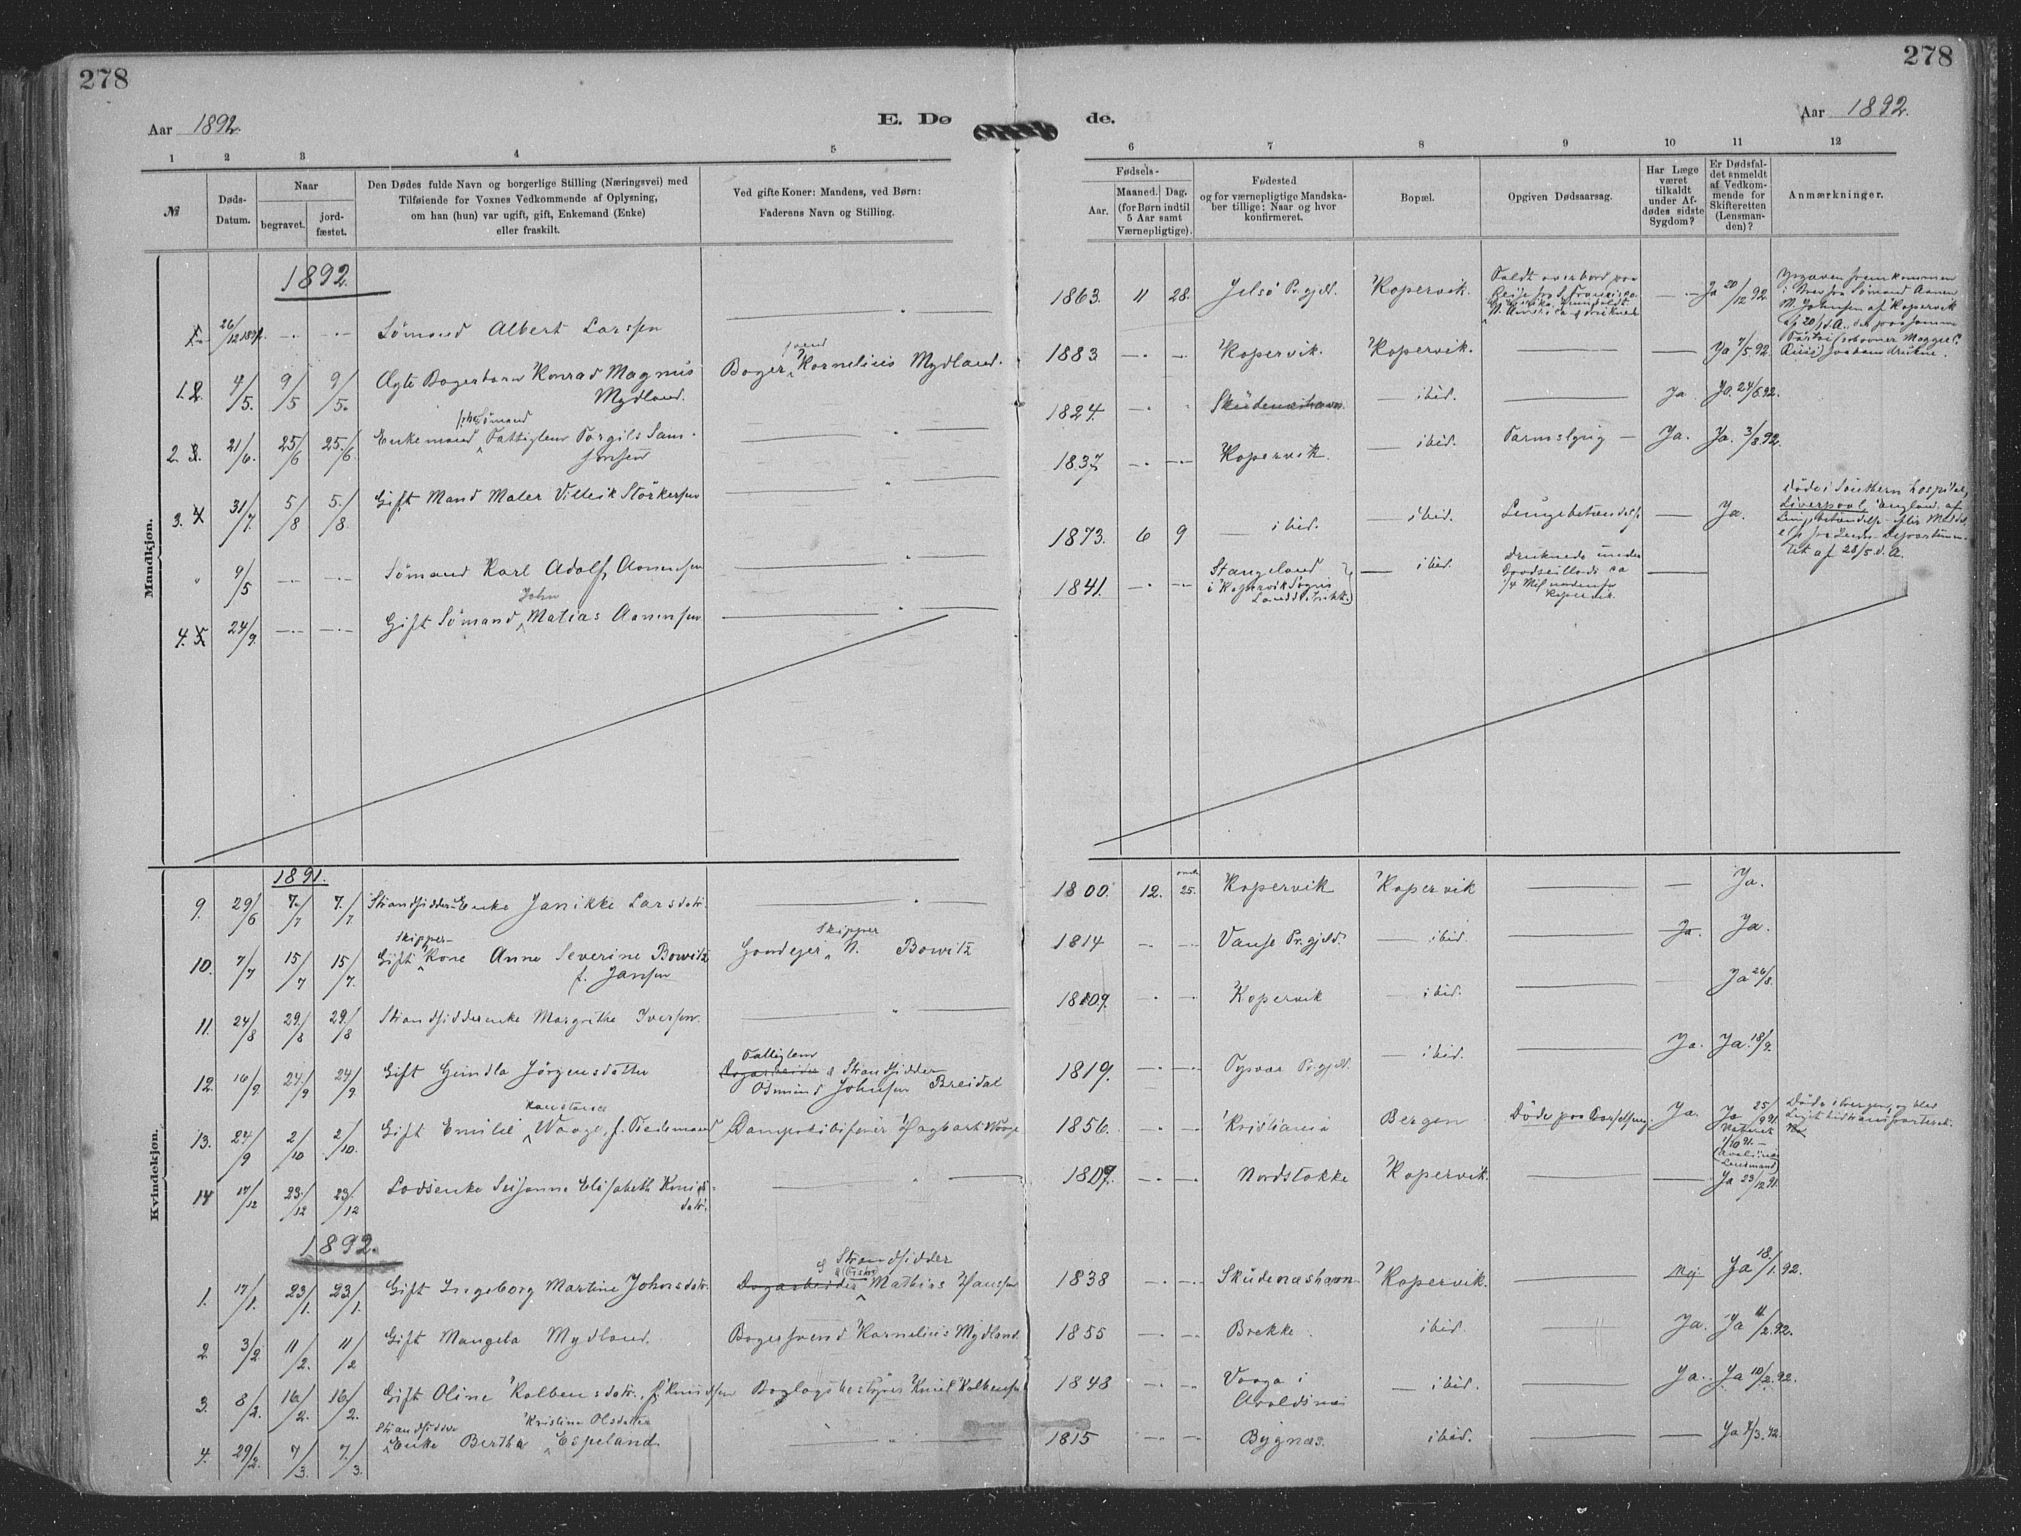 278
278
Aar 1892.
E. Dø
de.
Aar 1892.
1 2 3 4 5 6 7 8 9 10 11 12
№
Døds-
Datum.
Naar
begravet.
jord-
fæstet.
Den Dødes fulde Navn og borgerlige Stilling (Næringsvei) med
Tilføiende for Voxnes Vedkommende af Oplysning,
om han (hun) var ugift, gift, Enkemand (Enke)
eller fraskilt.
Ved gifte Koner: Mandens, ved Børn:
Faderens Navn og Stilling.
Fødsels-
Aar.
Maaned. Dag.
(for Børn indtil
5 Aar samt
Værnepligtige).
Fødested
og for værnepligtige Mandska-
ber tillige: Naar og hvor
konfirmeret.
Bopæl.
Opgiven Dødsaarsag.
Har Læge
været
tilkaldt
under Af-
dødes sidste
Sygdom?
Er Dødsfal-
det anmeldt
af Vedkom-
mende for
Skifteretten
(Lensman-
den)?
Anmærkninger.
Mandkjøn.
1892.
26/12 1891. Sømand Albert Larssen 1863. 11 28. Jelsø Pr.gjld. Kopervik. Faldt overbord paa Ja 20/12 92.
1. 4/5. 9/5 9/5. Ægte Bagerbarn Konrad Magnus
Mydland.
Bager svend Kornelius Mydland. 1883 Kopervik. Kopervik. Ja 7/5 92.
2. 21/6. 25/6 25/6. Enkemand Sømand Fattiglem Torgils Sam-
sonsen
1824. Skudeneshavn. ibid. Ja. Ja 24/6 92.
3. 31/7. 5/8 5/8. Gift Mand Maler Villeik Størkersen 1837 Kopervik. ibid. Tarmslyng Ja. Ja. 3/8 92.
9/5 Sømand Karl Adolf Aanensen 1873. 6 9 ibid. ibid. Lungebetændelse Ja.
Døde i Southern Hospital,
Liverpool England af
Lungebetændelse
af 28/5 d. A.
4. 24/9. Gift Sømand John Matias Aanensen 1841. Stangeland
i Kopervik Sogns
Landdistrikt
ibid. druknede under
Kopervik.
Kvindekjøn.
1891.
9. 29/6 7/7 7. /7 Strandsidder Enke Janikke Larsdatr. 1800 12. 25. Kopervik Kopervik Ja.
10. 7/7 15/7 15/7. Gift Skipper- Kone Anne Severine Bowitz
f. Jansen
Gaardejer Skipper N. Bowitz 1814 Vanse Pr.gjeld. ibid. Ja. Ja.
11. 24/8 29./8 29./8 Strandsidderenke Margrithe Iversen. 1809. Kopervik ibid. Ja 26/8.
12. 16/9 24./9 24/9 Gift Gundla Jørgensdatter
Fattiglem
Dagarbeider & Strandsidder
Osmund Johnsen Breidal
1819. Tysvær Pr.gjld. ibid. Ja. Ja. 18/9.
13. 24/9 2/10 2/10. Gift Emilie Konstanse Waage f. Tiedemand Dampskibsfører Hagbart Waage 1856. Kristiania Bergen Døde paa Barselseng Ja. Ja 25/9 91.
Døde i Bergen, og blev
Liget hidtransporteret.
14 17/12 23./12 23./12 Lodsenke Serjanna Elisabeth Knuds-
datr.
1809. Nordstokke Kopervik. Ja 23/12 91.
1892.
1. 17/1. 23/1. 23/1. Gift Ingeborg Martine Johnsdatr. Strandsidder
Dagarbeider Mathias Hansen 1838 Skudeneshavn Kopervik. Nej Ja 18/1. 92.
2. 3/2. 11/2. 11/2 Gift Mangela Mydland. Bagersvend Kornelius Mydland 1855 Brekke. ibid. Ja. Ja 11/2. 92.
3. 8/2. 16/2. 16/2. Gift Oline Kolbensdatr., f. Knudsen Baglagsbestyrer Knut Kolbensen 1848 Vaaga i
Avaldsnæs
ibid. Ja. Ja 10/2. 92.
4. 29/2. 7/3. 7./3. Strandsidder
Enke Bertha Kristine Olsdatter Espeland. 1815 Bygnæs. ibid. Ja 7/3. 92.